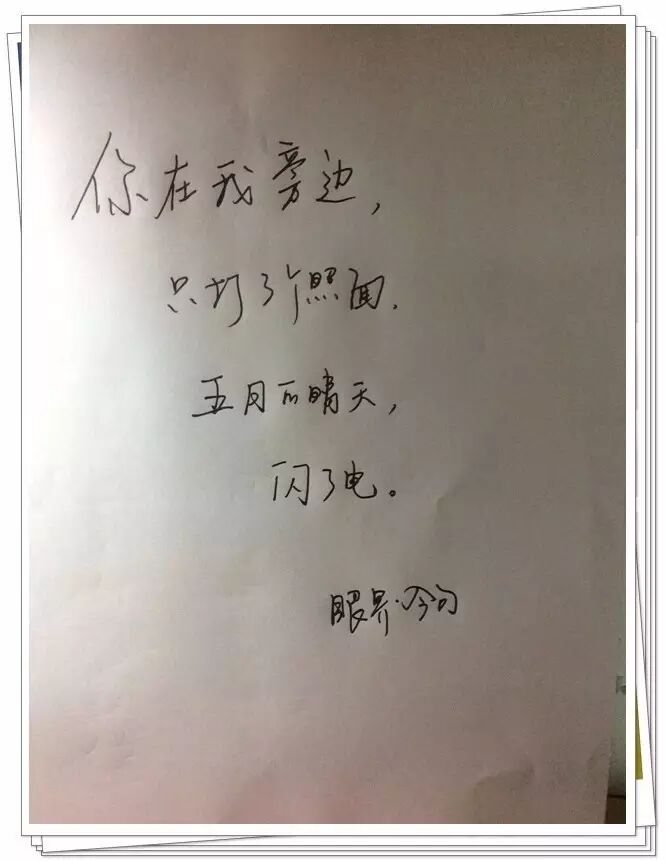 你在我旁边,
只打了个照面.
五月的晴天,
闪了电。
眼界